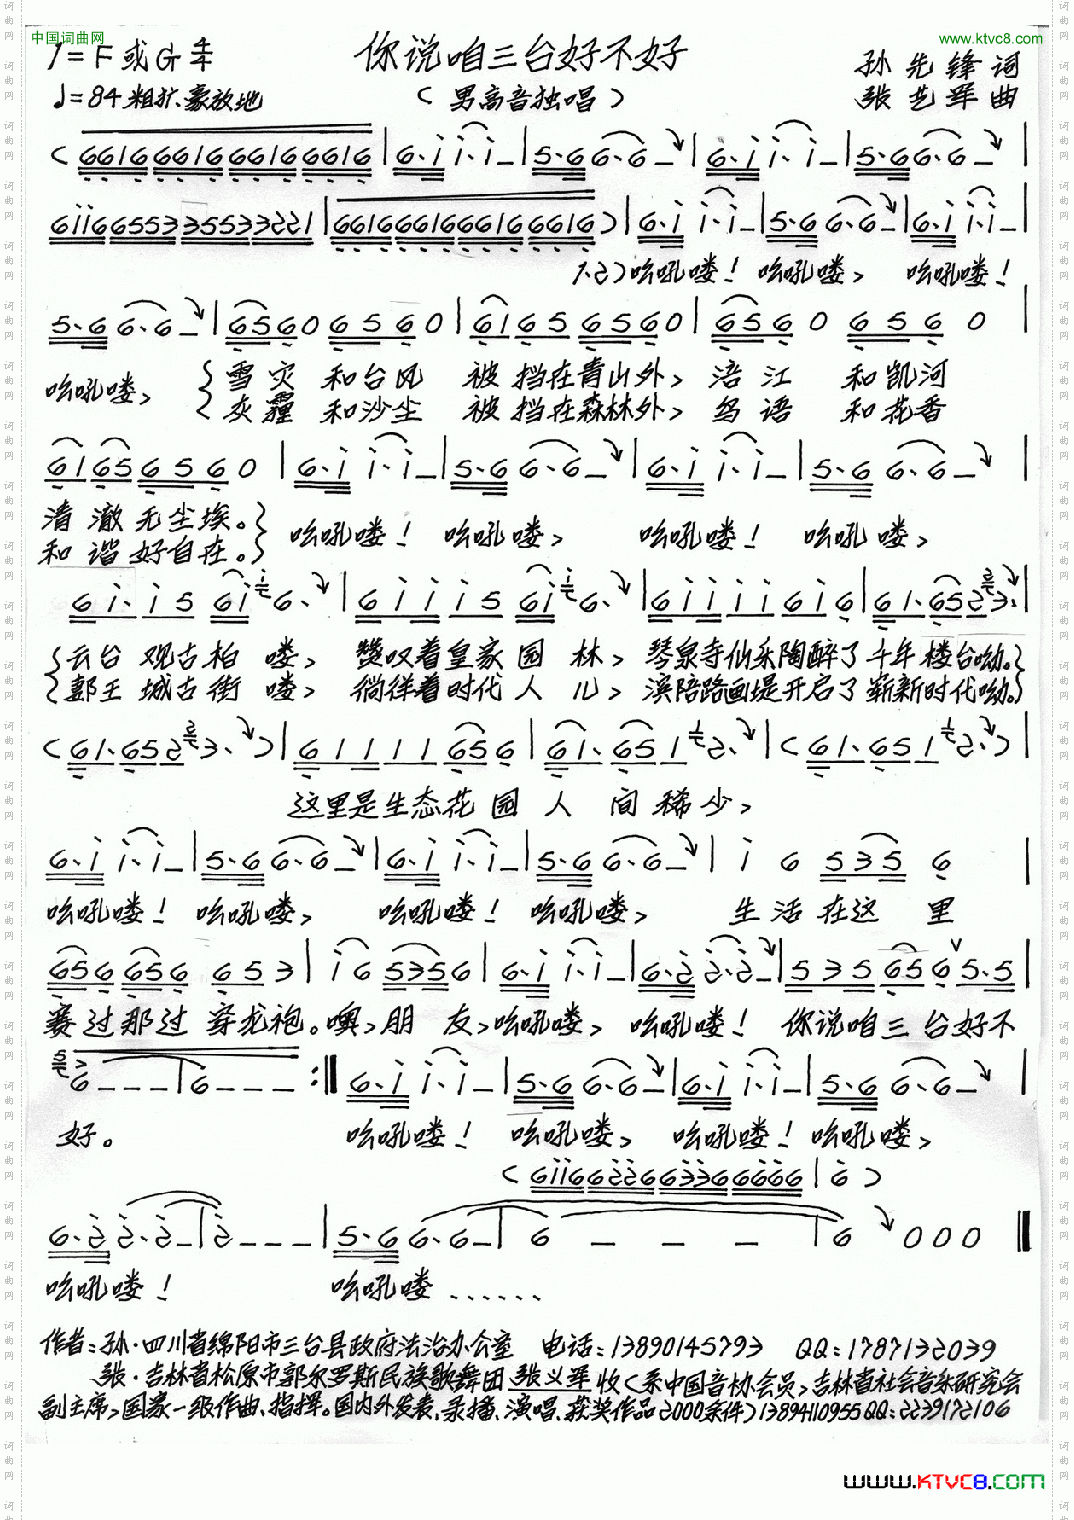 中国词曲网
www.ktvc8.com
1=F或G 4/4
你说咱三台好不好
孙先锋 词
♩=84 粗犷、豪放地
(男高音独唱)
张艺军 曲
1.2.)吆吼喽! 吆吼喽, 吆吼喽!
吆吼喽,
雪灾 和台风 被挡在青山外, 涪江 和凯河
灰霾 和沙尘 被挡在森林外, 鸟语 和花香
清澈无尘埃。
和谐好自在。
吆吼喽! 吆吼喽, 吆吼喽! 吆吼喽,
云台观古柏喽, 赞叹着皇家园林, 琴泉寺仙乐陶醉了千年楼台呦。
郪王城古街喽, 徜徉着时代人儿, 滨陪路画堤开启了崭新时代呦。
这里是生态花园人间稀少,
吆吼喽! 吆吼喽, 吆吼喽! 吆吼喽, 生活在这里
赛过那过穿龙袍。噢,朋友,吆吼喽, 吆吼喽! 你说咱三台好不
好。 吆吼喽! 吆吼喽, 吆吼喽! 吆吼喽,
吆吼喽! 吆吼喽......
作者:孙·四川省绵阳市三台县政府法治办公室 电话:13890145793 QQ:1787132039
张·吉林省松原市郭尔罗斯民族歌舞团 张义军收(系中国音协会员,吉林省社会音乐研究会
副主席,国家一级作曲、指挥。国内外发表、录播、演唱、获奖作品2000余件)13894110955 QQ:2239172106
www.KTVC8.com